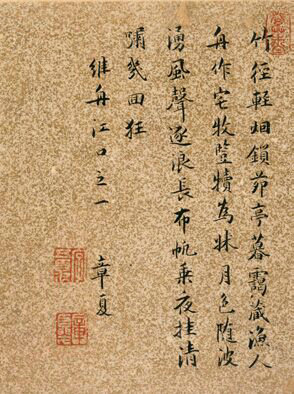 竹徑輕烟鎖茆亭暮靄藏漁人
舟作宅牧豎犢為牀月色随波
湧風聲逐浪長布帆乘夜挂清
嘯幾回狂
維舟江口之一
章夏